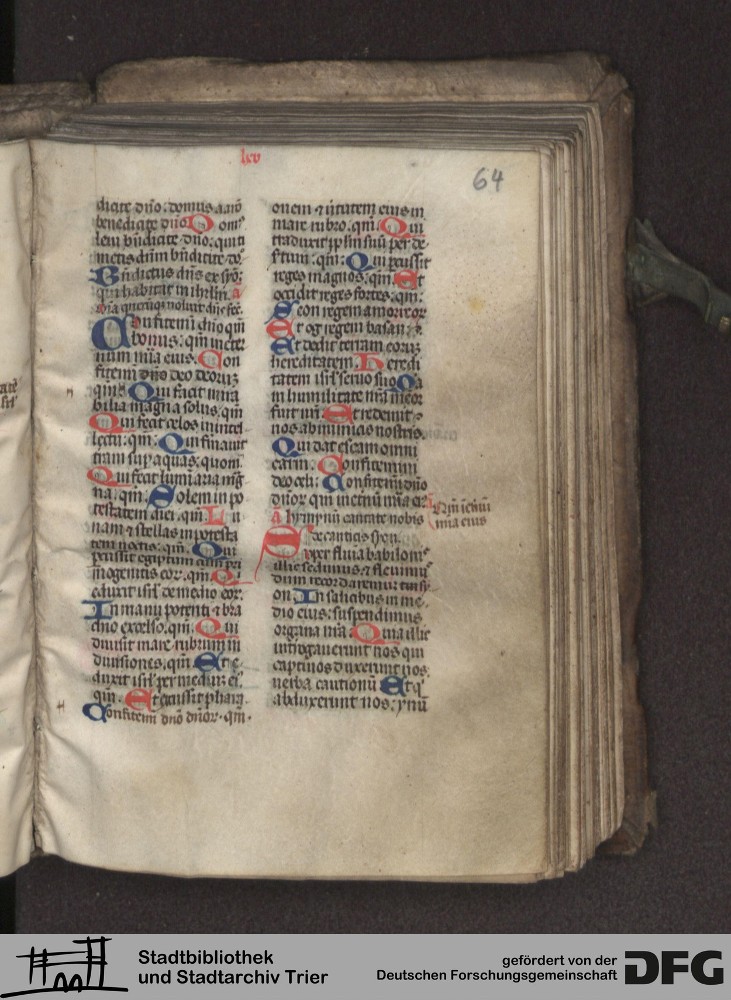 lxv
64
dicite dño: domus aarō
benedicite dño Q om̄
bñdicite dño: qui ti
metis dñm bñdicite dō
Bñdictus dñs ex syō:
qui habitat in ihrlm̄ a
Oīa quecūq; uoluit dñs fec̄.
Confitemī dño qm̄
bonus: qm̄ in eter
num mīa eius. Con
fitemī dño deo deorū
qm̄. Qui facit mira
bilia magna solus. qm̄
Qui fecit celos in intel
lectu: qm̄: Qui firmauit
terram sup aquas: quom̄
Qui fecit luminaria mag
na: qm̄: Solem in po
testatem diei. qm̄: Lu
nam & stellas in potesta
tem noctis: qm̄. Qui
percussit egiptum cum pri
mogenitis eor. qm̄. Qui
eduxit isrl de medio eor.
In manu potenti & bra
chio excelso. qm̄. Qui
diuisit mare rubrum in
diuisiones. qm̄. Et e
duxit isrl per mediū ei9
qm̄. Et excussit phara
Confitemī dño dñor. qm̄.
onem & uirtutem eius in
mare rubro. qm̄: Qui
traduxit pplm suū per de
sertum: qm̄: Qui percussit
reges magnos: qm̄. Et
occidit reges fortes: qm̄:
Seon regem amorreor
Et og regem basan: q̄
Et dedit terram eorum
hereditatem. Heredi
tatem isrl seruo suo Qa
in humilitate nr̄a memor
fuit nr̄i Et redemit
nos ab inimicis nostris.
Qui dat escam omni
carni: Confitemini
deo celi: Confitemī dño
dñor qm̄ in eternū mīa ei9
Qm̄ in eternū
mīa eius
A hymnum cantate nobis
de canticis syon.
Super flumina babilonis
illic sedimus & fleuim9
dum recordaremur tui sy
on In salicibus in me
dio eius: suspendimus
organa nr̄a. Quia illic
interrogauerunt nos qui
captiuos duxerunt nos
uerba cantionū Et q̄
abduxerunt nos: ymnū
Stadtbibliothek
und Stadtarchiv Trier
gefördert von der
Deutschen Forschungsgemeinschaft
DFG